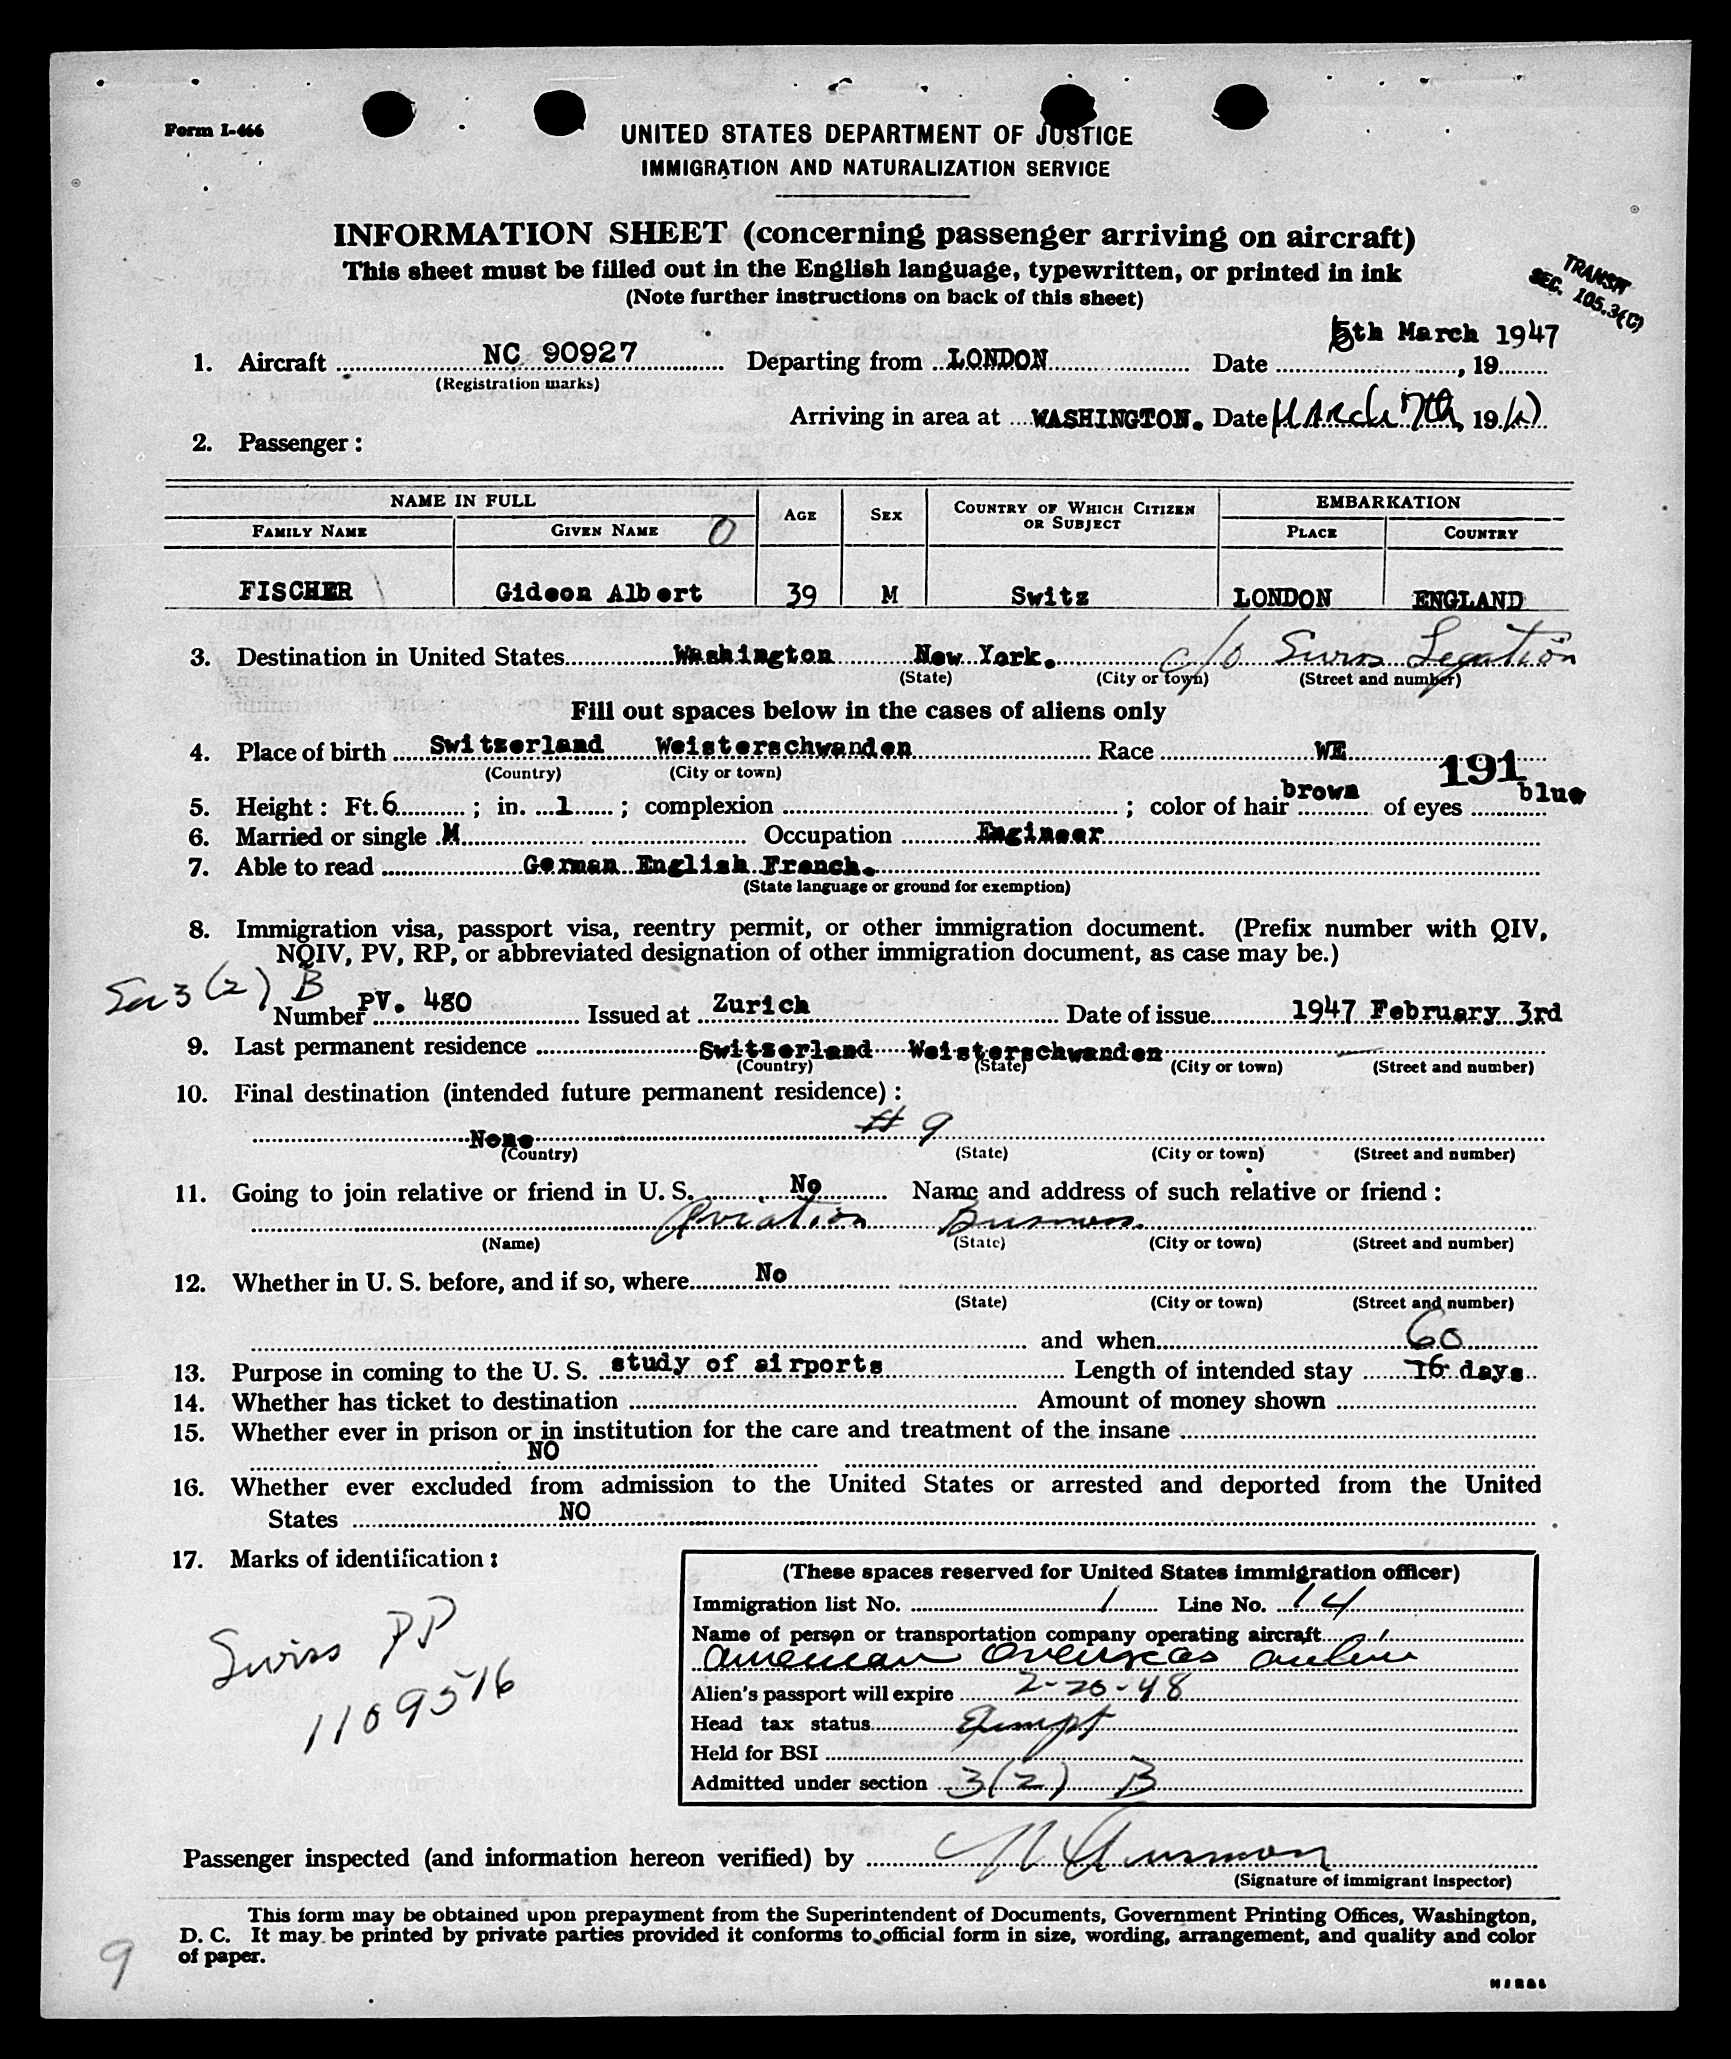 Form I-466
UNITED STATES DEPARTMENT OF JUSTICE
IMMIGRATION AND NATURALIZATION SERVICE
INFORMATION SHEET (concerning passenger arriving on aircraft)
This sheet must be filled out in the English language, typewritten, or printed in ink
(Note further instructions on back of this sheet)
TRANSIT
SEC. 105.3(C)
5th March 1947
1. Aircraft NC 90927 Departing from LONDON Date , 19
(Registration marks)
Arriving in area at WASHINGTON. Date MARch 7th, 1947
2. Passenger :
NAME IN FULL EMBARKATION
FAMILY NAME GIVEN NAME 0 AGE SEX COUNTRY OF WHICH CITIZEN OR SUBJECT PLACE COUNTRY
FISCHER Gideon Albert 39 M Switz LONDON ENGLAND
3. Destination in United States Washington New York. c/o Swiss Legation
(State) (City or town) (Street and number)
Fill out spaces below in the cases of aliens only
4. Place of birth Switzerland Weisterschwanden Race WE
(Country) (City or town) 191
5. Height : Ft. 6 ; in. 1 ; complexion ; color of hair brown of eyes blue
6. Married or single M Occupation Engineer
7. Able to read German English French.
(State language or ground for exemption)
8. Immigration visa, passport visa, reentry permit, or other immigration document. (Prefix number with QIV,
NQIV, PV, RP, or abbreviated designation of other immigration document, as case may be.)
3 (2) B
Number PV. 480 Issued at Zurich Date of issue 1947 February 3rd
9. Last permanent residence Switzerland Weisterschwanden
(Country) (State) (City or town) (Street and number)
10. Final destination (intended future permanent residence) :
None # 9
(Country) (State) (City or town) (Street and number)
11. Going to join relative or friend in U. S. No Name and address of such relative or friend :
Aviation Business
(Name) (State) (City or town) (Street and number)
12. Whether in U. S. before, and if so, where No
(State) (City or town) (Street and number)
and when 60
13. Purpose in coming to the U. S. study of airports Length of intended stay 16 days
14. Whether has ticket to destination Amount of money shown
15. Whether ever in prison or in institution for the care and treatment of the insane
NO
16. Whether ever excluded from admission to the United States or arrested and deported from the United
States NO
17. Marks of identification :
Swiss PP
1109516
(These spaces reserved for United States immigration officer)
Immigration list No. 1 Line No. 14
Name of person or transportation company operating aircraft
American Overseas Airline
Alien's passport will expire 2-20-48
Head tax status Exempt
Held for BSI
Admitted under section 3(2) B
Passenger inspected (and information hereon verified) by
(Signature of immigrant inspector)
This form may be obtained upon prepayment from the Superintendent of Documents, Government Printing Offices, Washington,
D. C. It may be printed by private parties provided it conforms to official form in size, wording, arrangement, and quality and color
of paper.
9